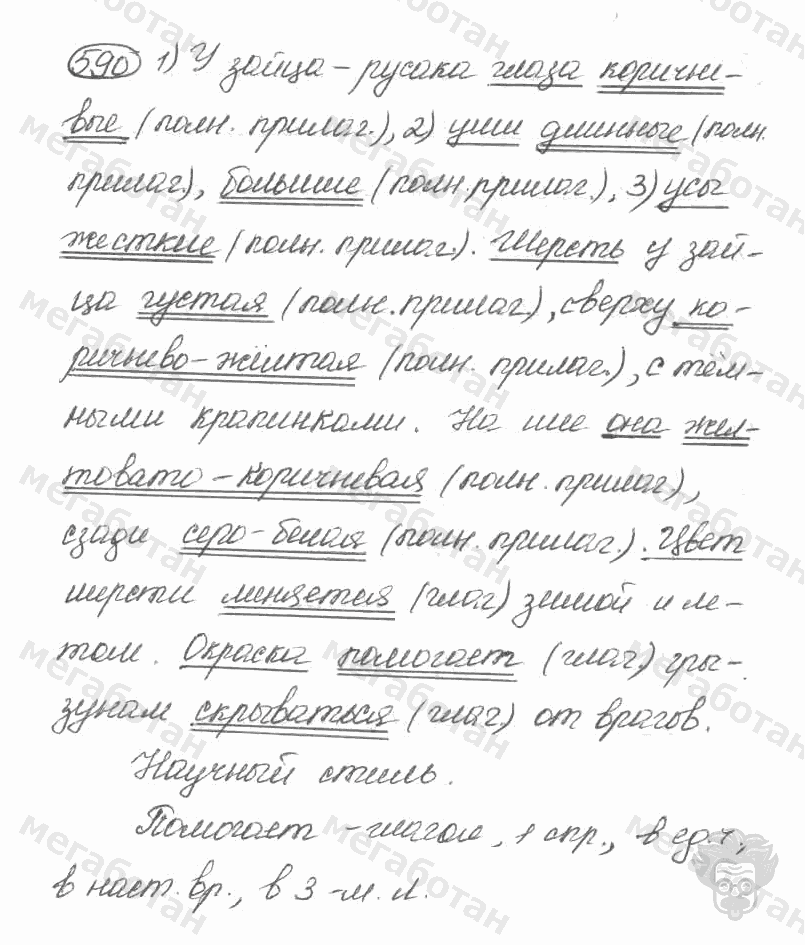 590 1) У зайца-русака глаза коричне-
вые (полн. прилаг.), 2) уши длинные (полн.
прилаг.), большие (полн. прилаг.), 3) усы
жесткие (полн. прилаг.). Шерсть у зай-
ца густая (полн. прилаг.), сверху ко-
ричнево-жёлтая (полн. прилаг.), с тём-
ными крапинками. На шее она жел-
товато-коричневая (полн. прилаг),
сзади серо-белая (полн. прилаг.). Цвет
шерсти меняется (глаг) зимой и ле-
том. Окраска помогает (глаг.) гры-
зунам скрываться (глаг.) от врагов.
Научный стиль.
Помогает - глагол, 1 спр., в ед.ч,
в наст. вр., в 3-м. л.